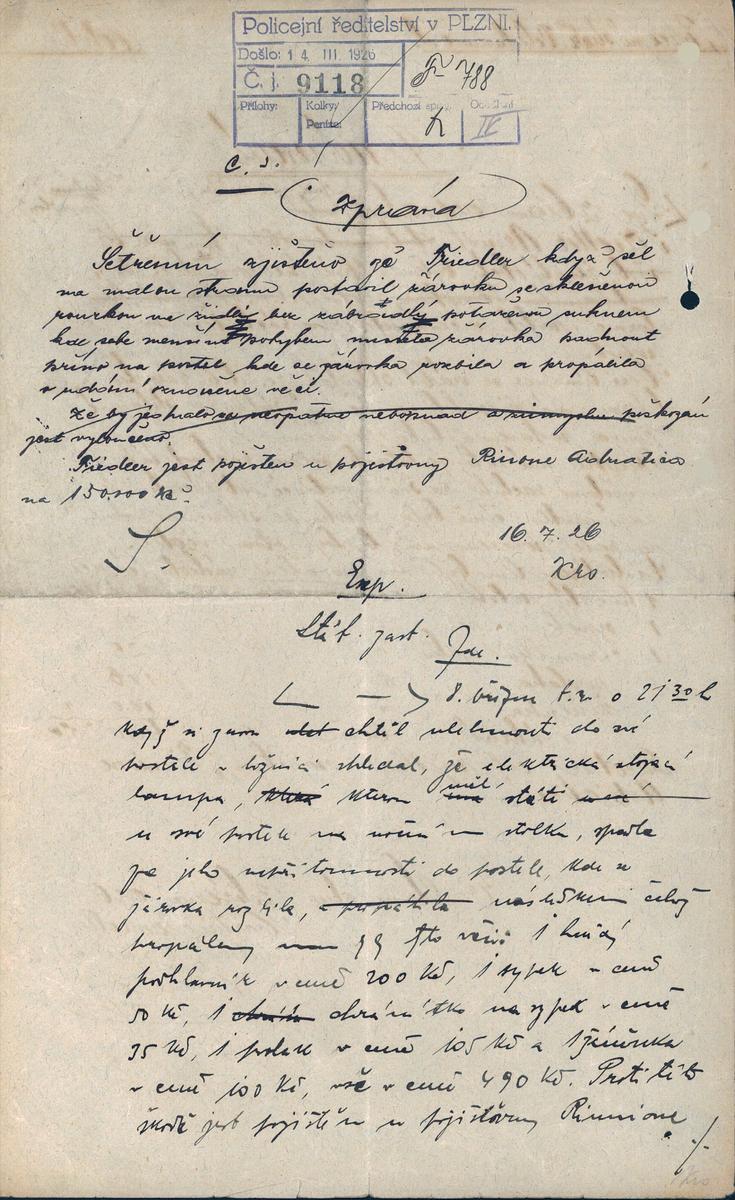 Policejní ředitelství v PLZNI.
Došlo: 14. III. 1926
Č. j. 9118
F 788
Přílohy:
Kolky:
Peníze:
Předchozí spis:
IV
Č. j.
Zpráva
Šetřením zjištěno že Friedler když šel
na malou stranu postavil žárovku se skleněnou
rourkou na bez potaženou suknem
kde sebe menším pohybem žárovka padnout
přímo na postel kde se žárovka rozbila a propálila
v udání označené věci.
Že by jednalo se neopatrné nebo snad a úmyslné poškození
jest vyloučeno.
Friedler jest pojištěn u pojišťovny Riunone Adriatica
na 150.000 Kč.
16. 7. 26
Exp.
Stát. zast. zde.
8. března t.r. o 21 30 h
když si chtěl ulehnouti do své
postele v ložnici shledal, že elektrická stojací
lampa, kterou měl státi
u své postele na nočním stolku, spadla
za jeho nepřítomnosti do postele, kde se
žárovka rozbila, následkem čehož
propáleny věci 1
podhlavník v ceně 200 Kč, 1 sypek v ceně
50 Kč, 1 na sypek v ceně
35 Kč, 1 povlak v ceně 105 Kč a 1 žíněnka
v ceně 100 Kč, vše v ceně 490 Kč. Proti této
škodě jest pojištěn u pojišťovny Riunione
./.